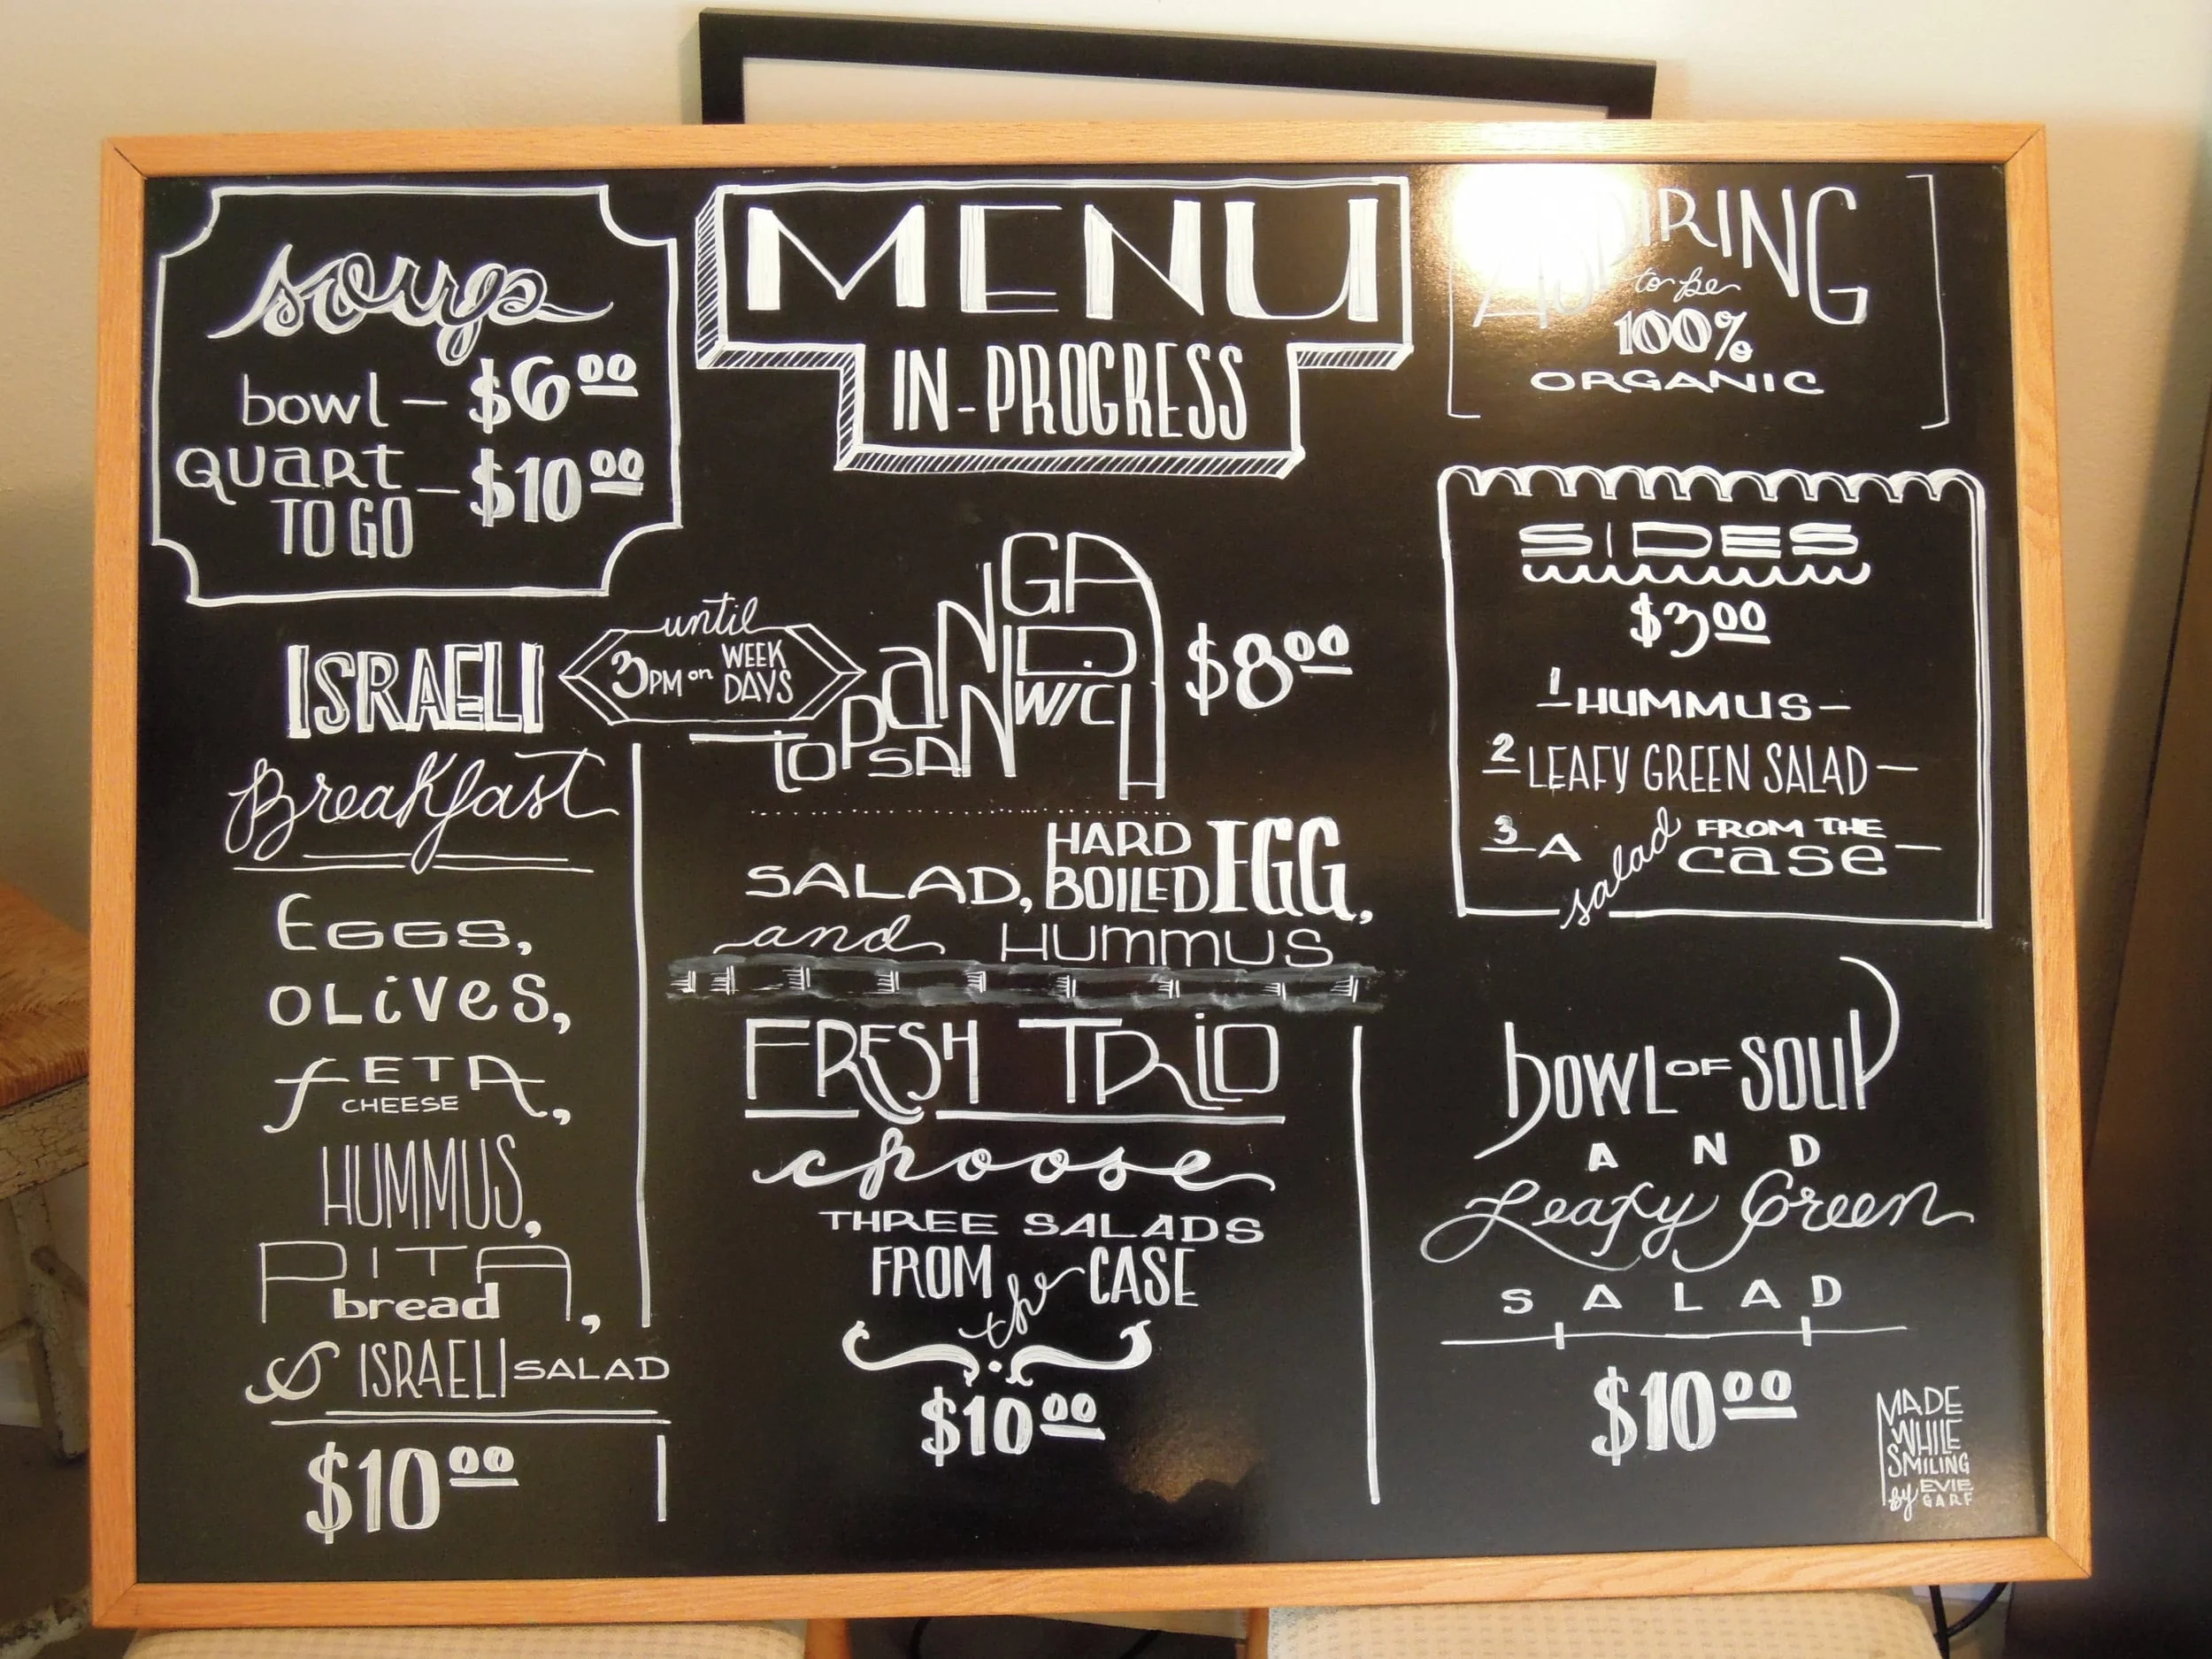 soup
bowl — $6.00
QUART TO GO — $10.00
MENU
IN-PROGRESS
ASPIRING
to be
100%
ORGANIC
ISRAELI
Breakfast
until
3PM on WEEK DAYS
EGGS,
OLiVeS,
fETA
CHEESE,
HUMMUS,
PITA
bread,
& ISRAELI SALAD
$10.00
TOPANGA
SANDWICH
$8.00
SALAD, HARD BOILED EGG,
and HUMMUS
FRESH TRiO
choose
THREE SALADS
FROM the CASE
$10.00
SIDES
$3.00
1 HUMMUS —
2 LEAFY GREEN SALAD —
3 A salad FROM THE case —
BOWL OF SOUP
AND
Leafy Green
SALAD
$10.00
MADE
WHILE
SMILING
by EVIE
GARF